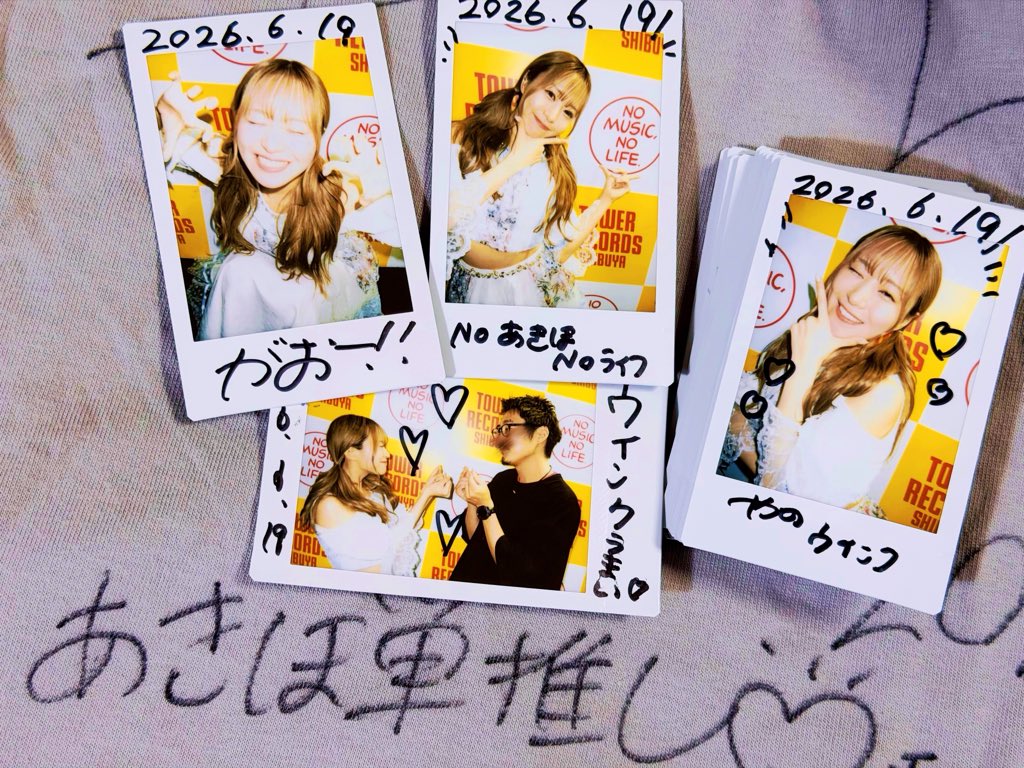 2026.6.19
NO
がおー!!
2026.6.19
SHIBU
NO
MUSIC,
NO
LIFE.
TOWER
RECORDS
SHIBUYA
Noあきほ
Noライフ
2026.6.19
TOWER
RECORDS
やのウインク
6.19
TOWER
RECORDS
SHIBUYA
NO
MUSIC,
NO
LIFE.
ウインク
あきほ単推し
20